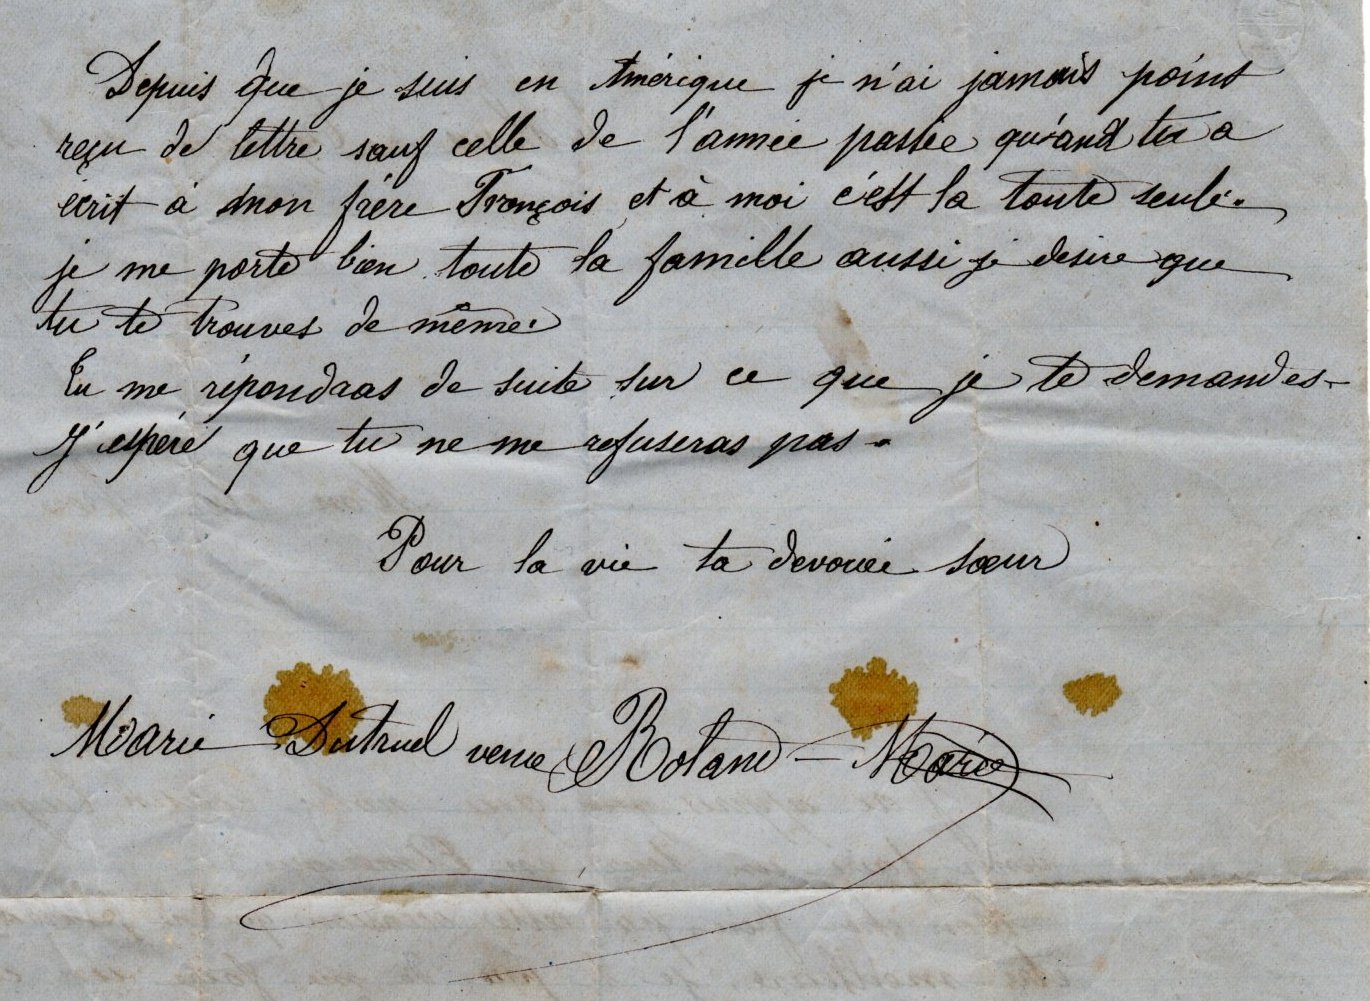 Depuis que je suis en Amérique je n'ai jamais point
reçu de lettre sauf celle de l'année passée quand tu a
écrit à mon frère François et à moi c'est la toute seule.
je me porte bien toute la famille aussi je desire que
tu te trouves de même.
Tu me répondras de suite sur ce que je te demandes-
J'espére que tu ne me refuseras pas.
Pour la vie ta devouée sœur
Marie Dutruel veuve Roland - Marie